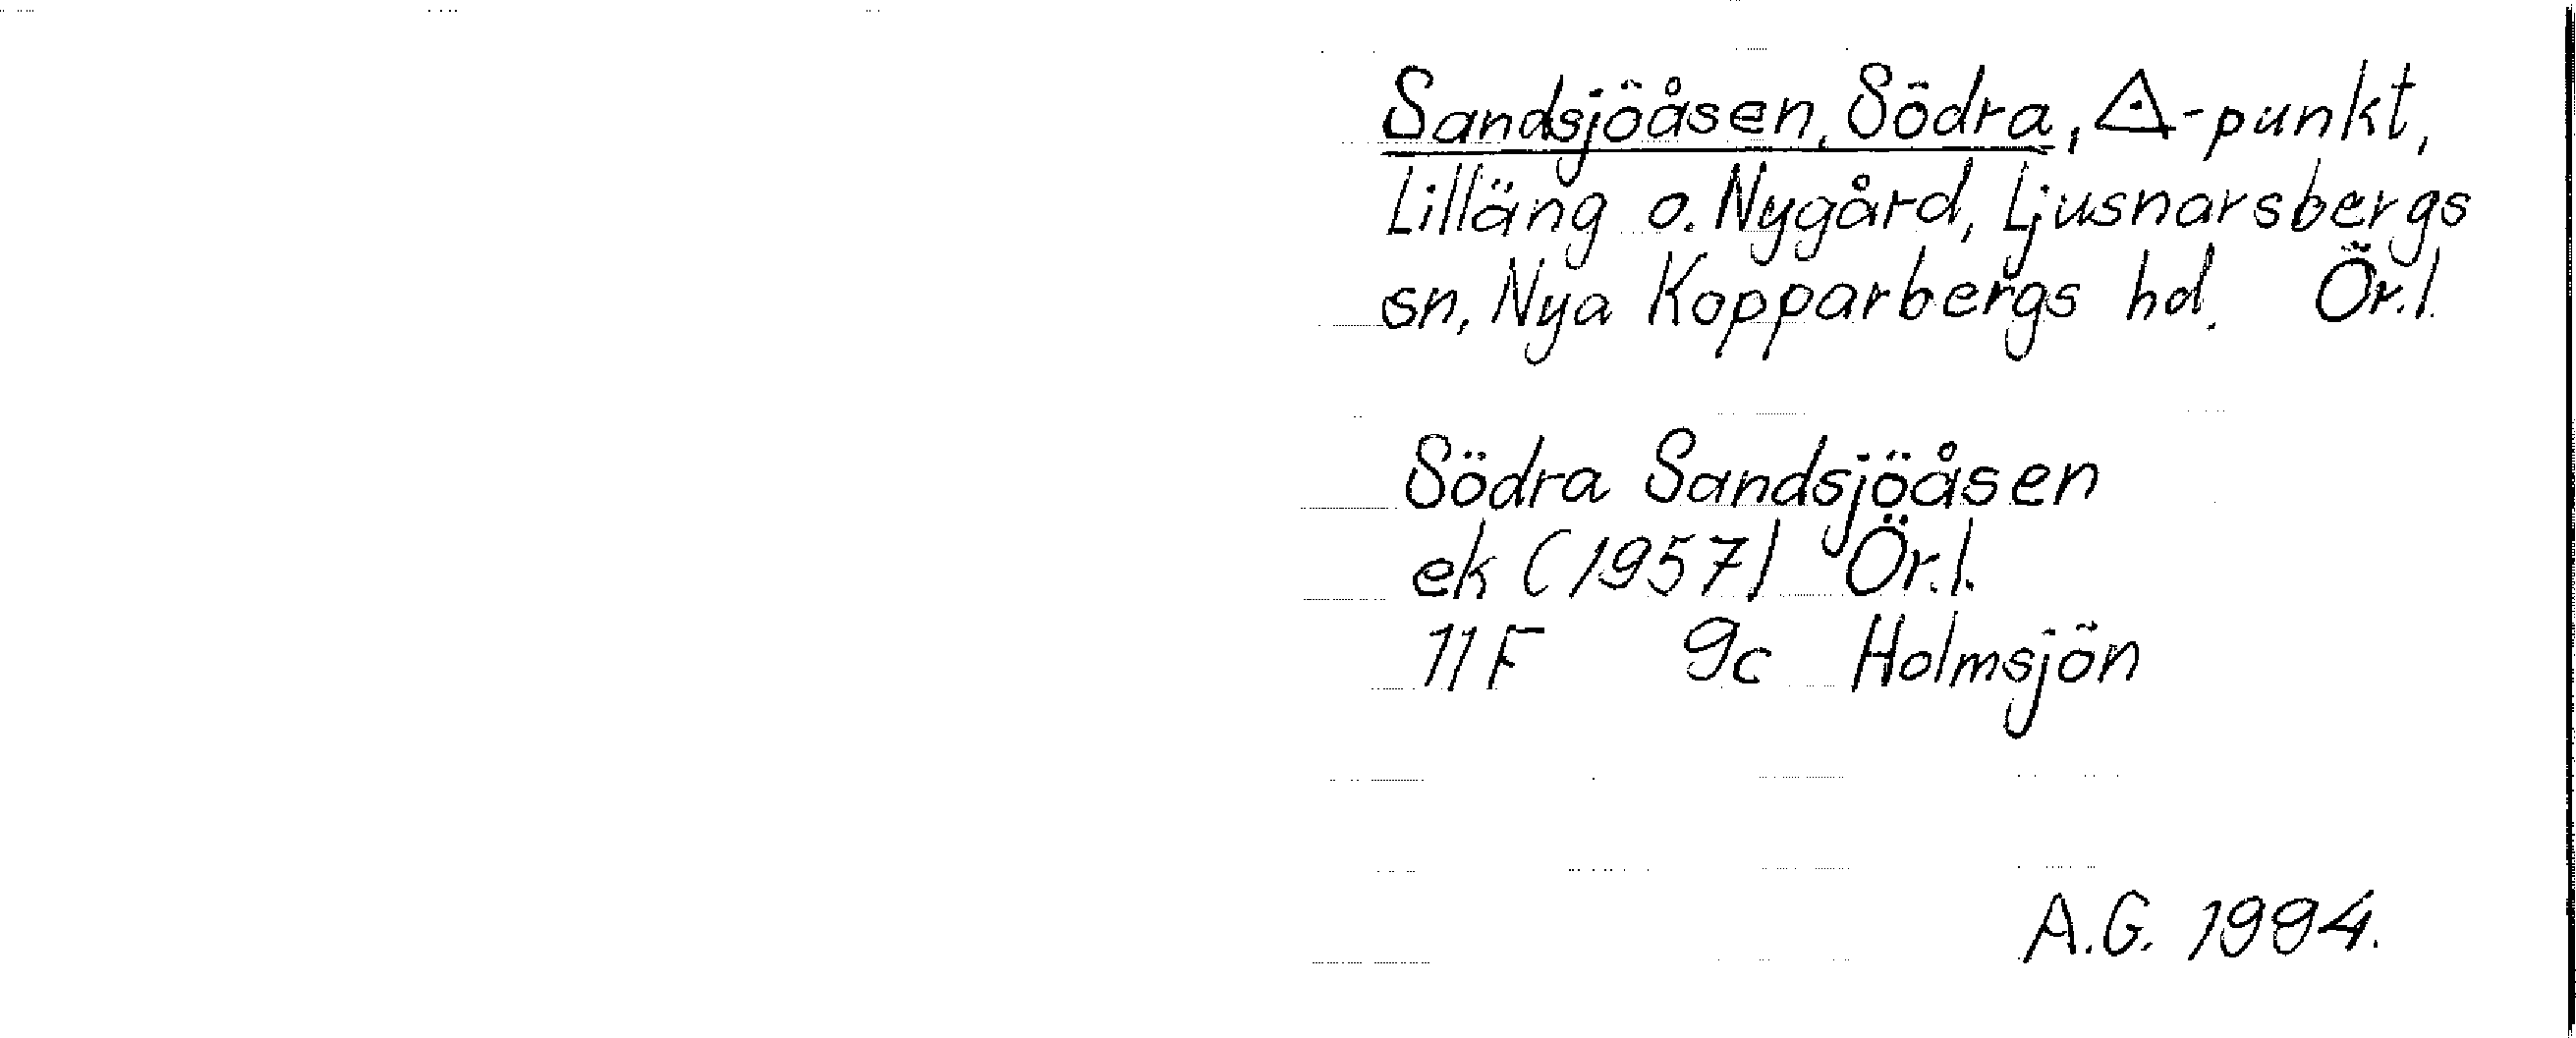 Sandsjöåsen, Södra, △-punkt,
Lilläng o. Nygård, Ljusnarsbergs
sn, Nya Kopparbergs hd. Ör.l.
Södra Sandsjöåsen
ek (1957) Ör.l.
11F 9c Holmsjön
A.G. 1994.